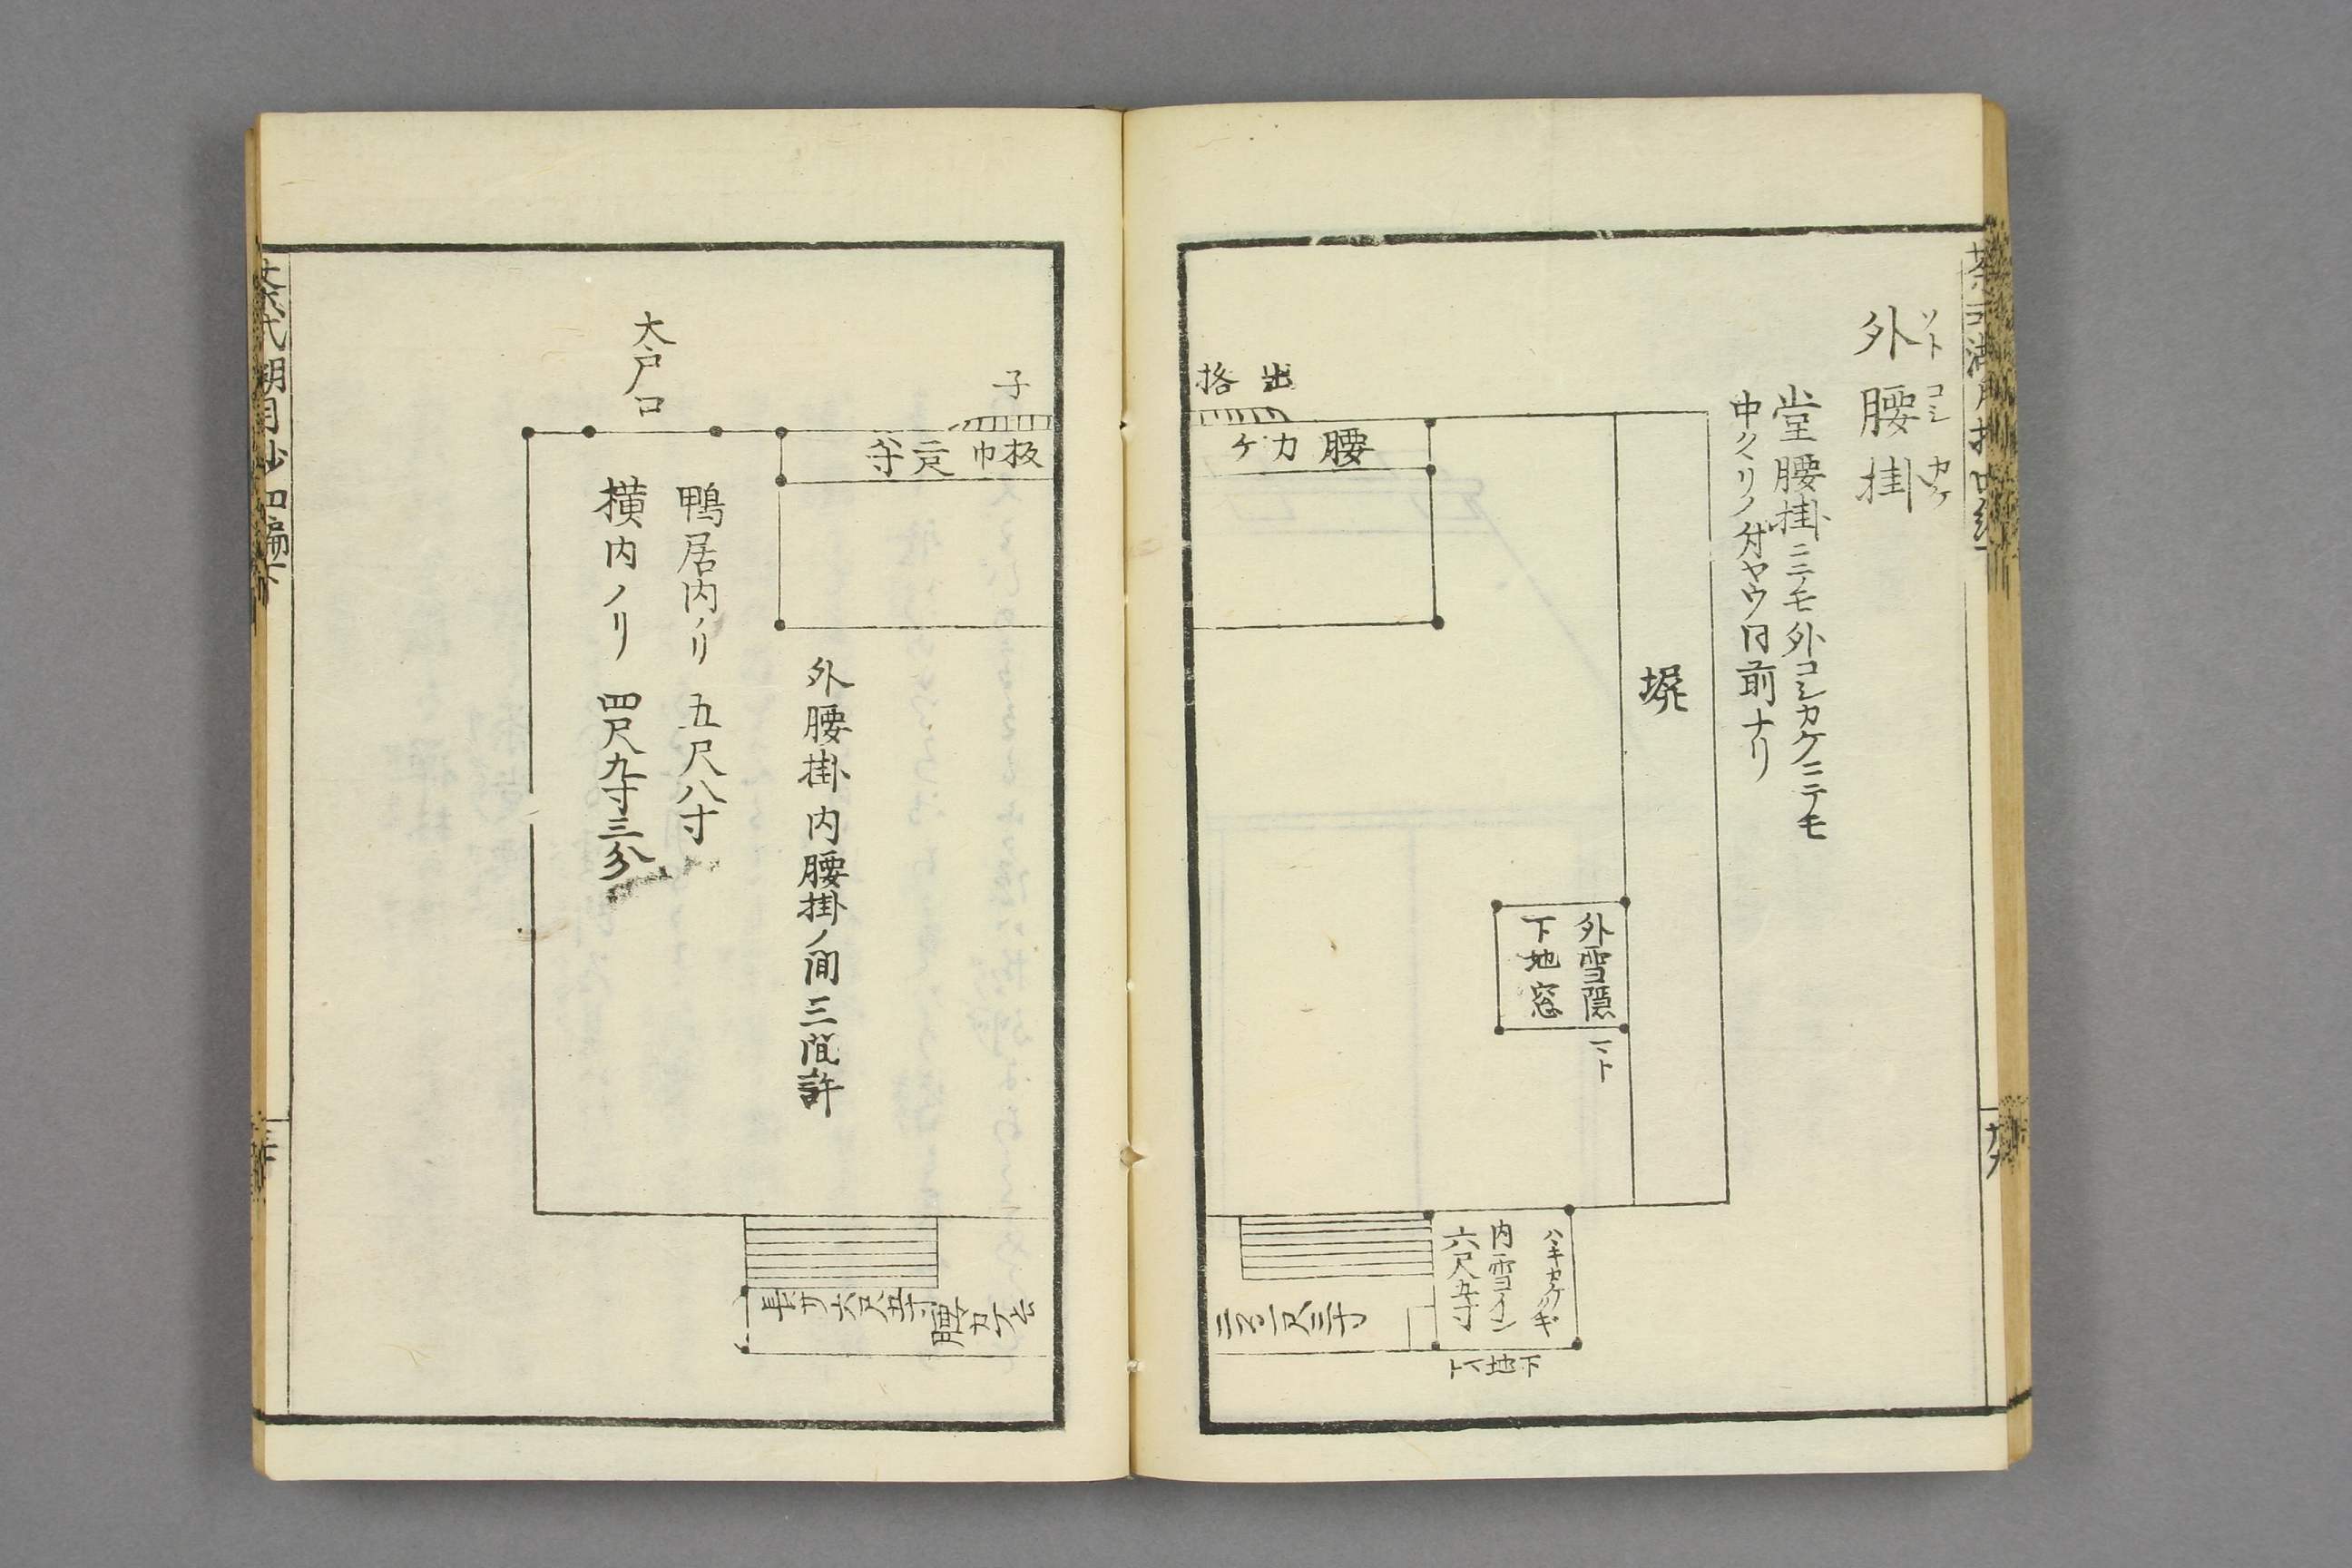 外腰掛
ソト コシ カケ
堂腰掛ニテモ外コシカケニテモ
中クヾリノ付ヤウ同前ナリ
塀
出格
腰カケ
外雪隠
下地窓
マト
ハキカケクギ
内雪イン
六尺五寸
下地マト
二尺三寸
子
板巾二尺
大戸口
外腰掛内腰掛ノ間三間許
鴨居内ノリ 五尺八寸
横内ノリ 四尺九寸三分
腰カケ
長サ六尺五寸
茶式湖月抄 四編下